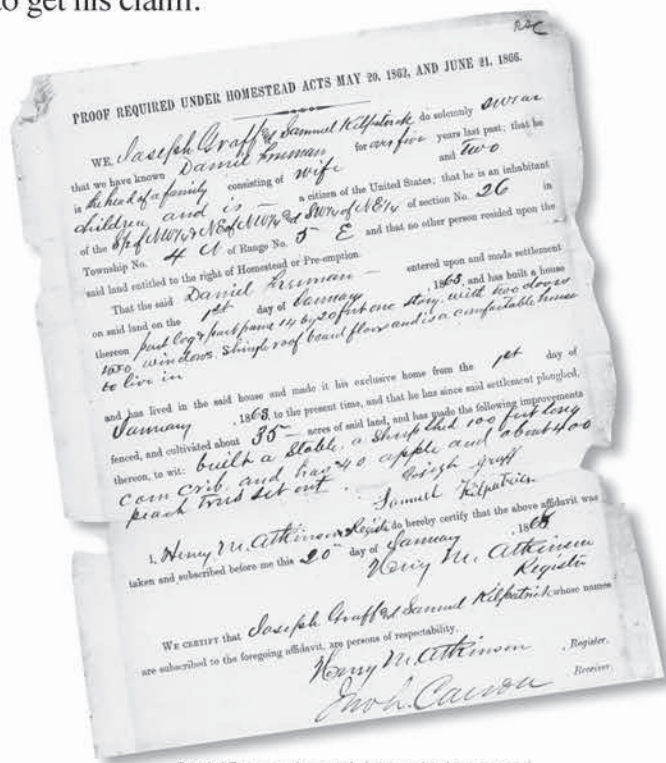 to get his claim.
PROOF REQUIRED UNDER HOMESTEAD ACTS MAY 20, 1862, AND JUNE 21, 1866.
WE, Joseph Graff & Samuel Kilpatrick do solemnly swear
that we have known Daniel Freeman for over five years last past; that he
is the head of a family consisting of wife and two
children and is — a citizen of the United States; that he is an inhabitant
of the S½ of NW¼ & NE of NW¼ & SW¼ of NE¼ of section No. 26 in
Township No. 4 N of Range No. 5 E and that no other person resided upon the
said land entitled to the right of Homestead or Pre-emption.
That the said Daniel Freeman — entered upon and made settlement
on said land on the 1st day of January, 1863, and has built a house
thereon part log & part frame 14 by 20 feet one story, with two doors
two windows, shingle roof board floors and is a comfortable house
to live in
and has lived in the said house and made it his exclusive home from the 1st day of
January, 1863, to the present time, and that he has since said settlement ploughed,
fenced, and cultivated about 35 — acres of said land, and has made the following improvements
thereon, to wit: built a Stable, a Sheep shed 100 feet long
corn crib, and has 40 apple and about 400
peach trees set out.
Joseph Graff
Samuel Kilpatrick
I, Henry M. Atkinson, Register do hereby certify that the above affidavit was
taken and subscribed before me this 20th day of January, 1868
Henry M. Atkinson
Register
WE CERTIFY that Joseph Graff & Samuel Kilpatrick whose names
are subscribed to the foregoing affidavit, are persons of respectability.
Henry M. Atkinson, Register.
Jno L. Carson Receiver.